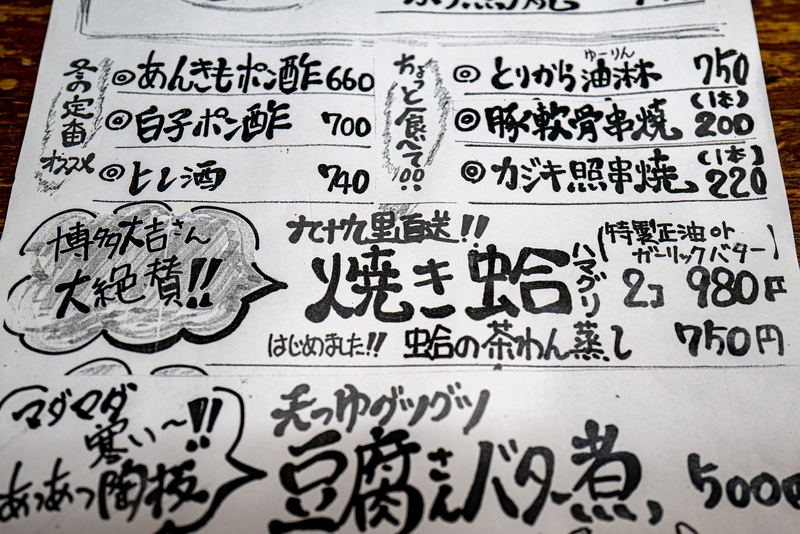 冬の定番
オススメ
◎あんきもポン酢 660
◎白子ポン酢 700
◎ヒレ酒 740
ちょっと食べて!!
ゆーりん
◎とりから油淋 750
◎豚軟骨串焼 (1本) 200
◎カジキ照串焼 (1本) 220
博多大吉さん
大絶賛!!
九十九里直送!!
焼き蛤 ハマグリ
(特製正油or
ガーリックバター)
2コ 980円
はじめました!! 蛤の茶わん蒸し 750円
マダマダ
寒い〜!!
あつあつ陶板
天つゆグツグツ
豆腐さんバター煮